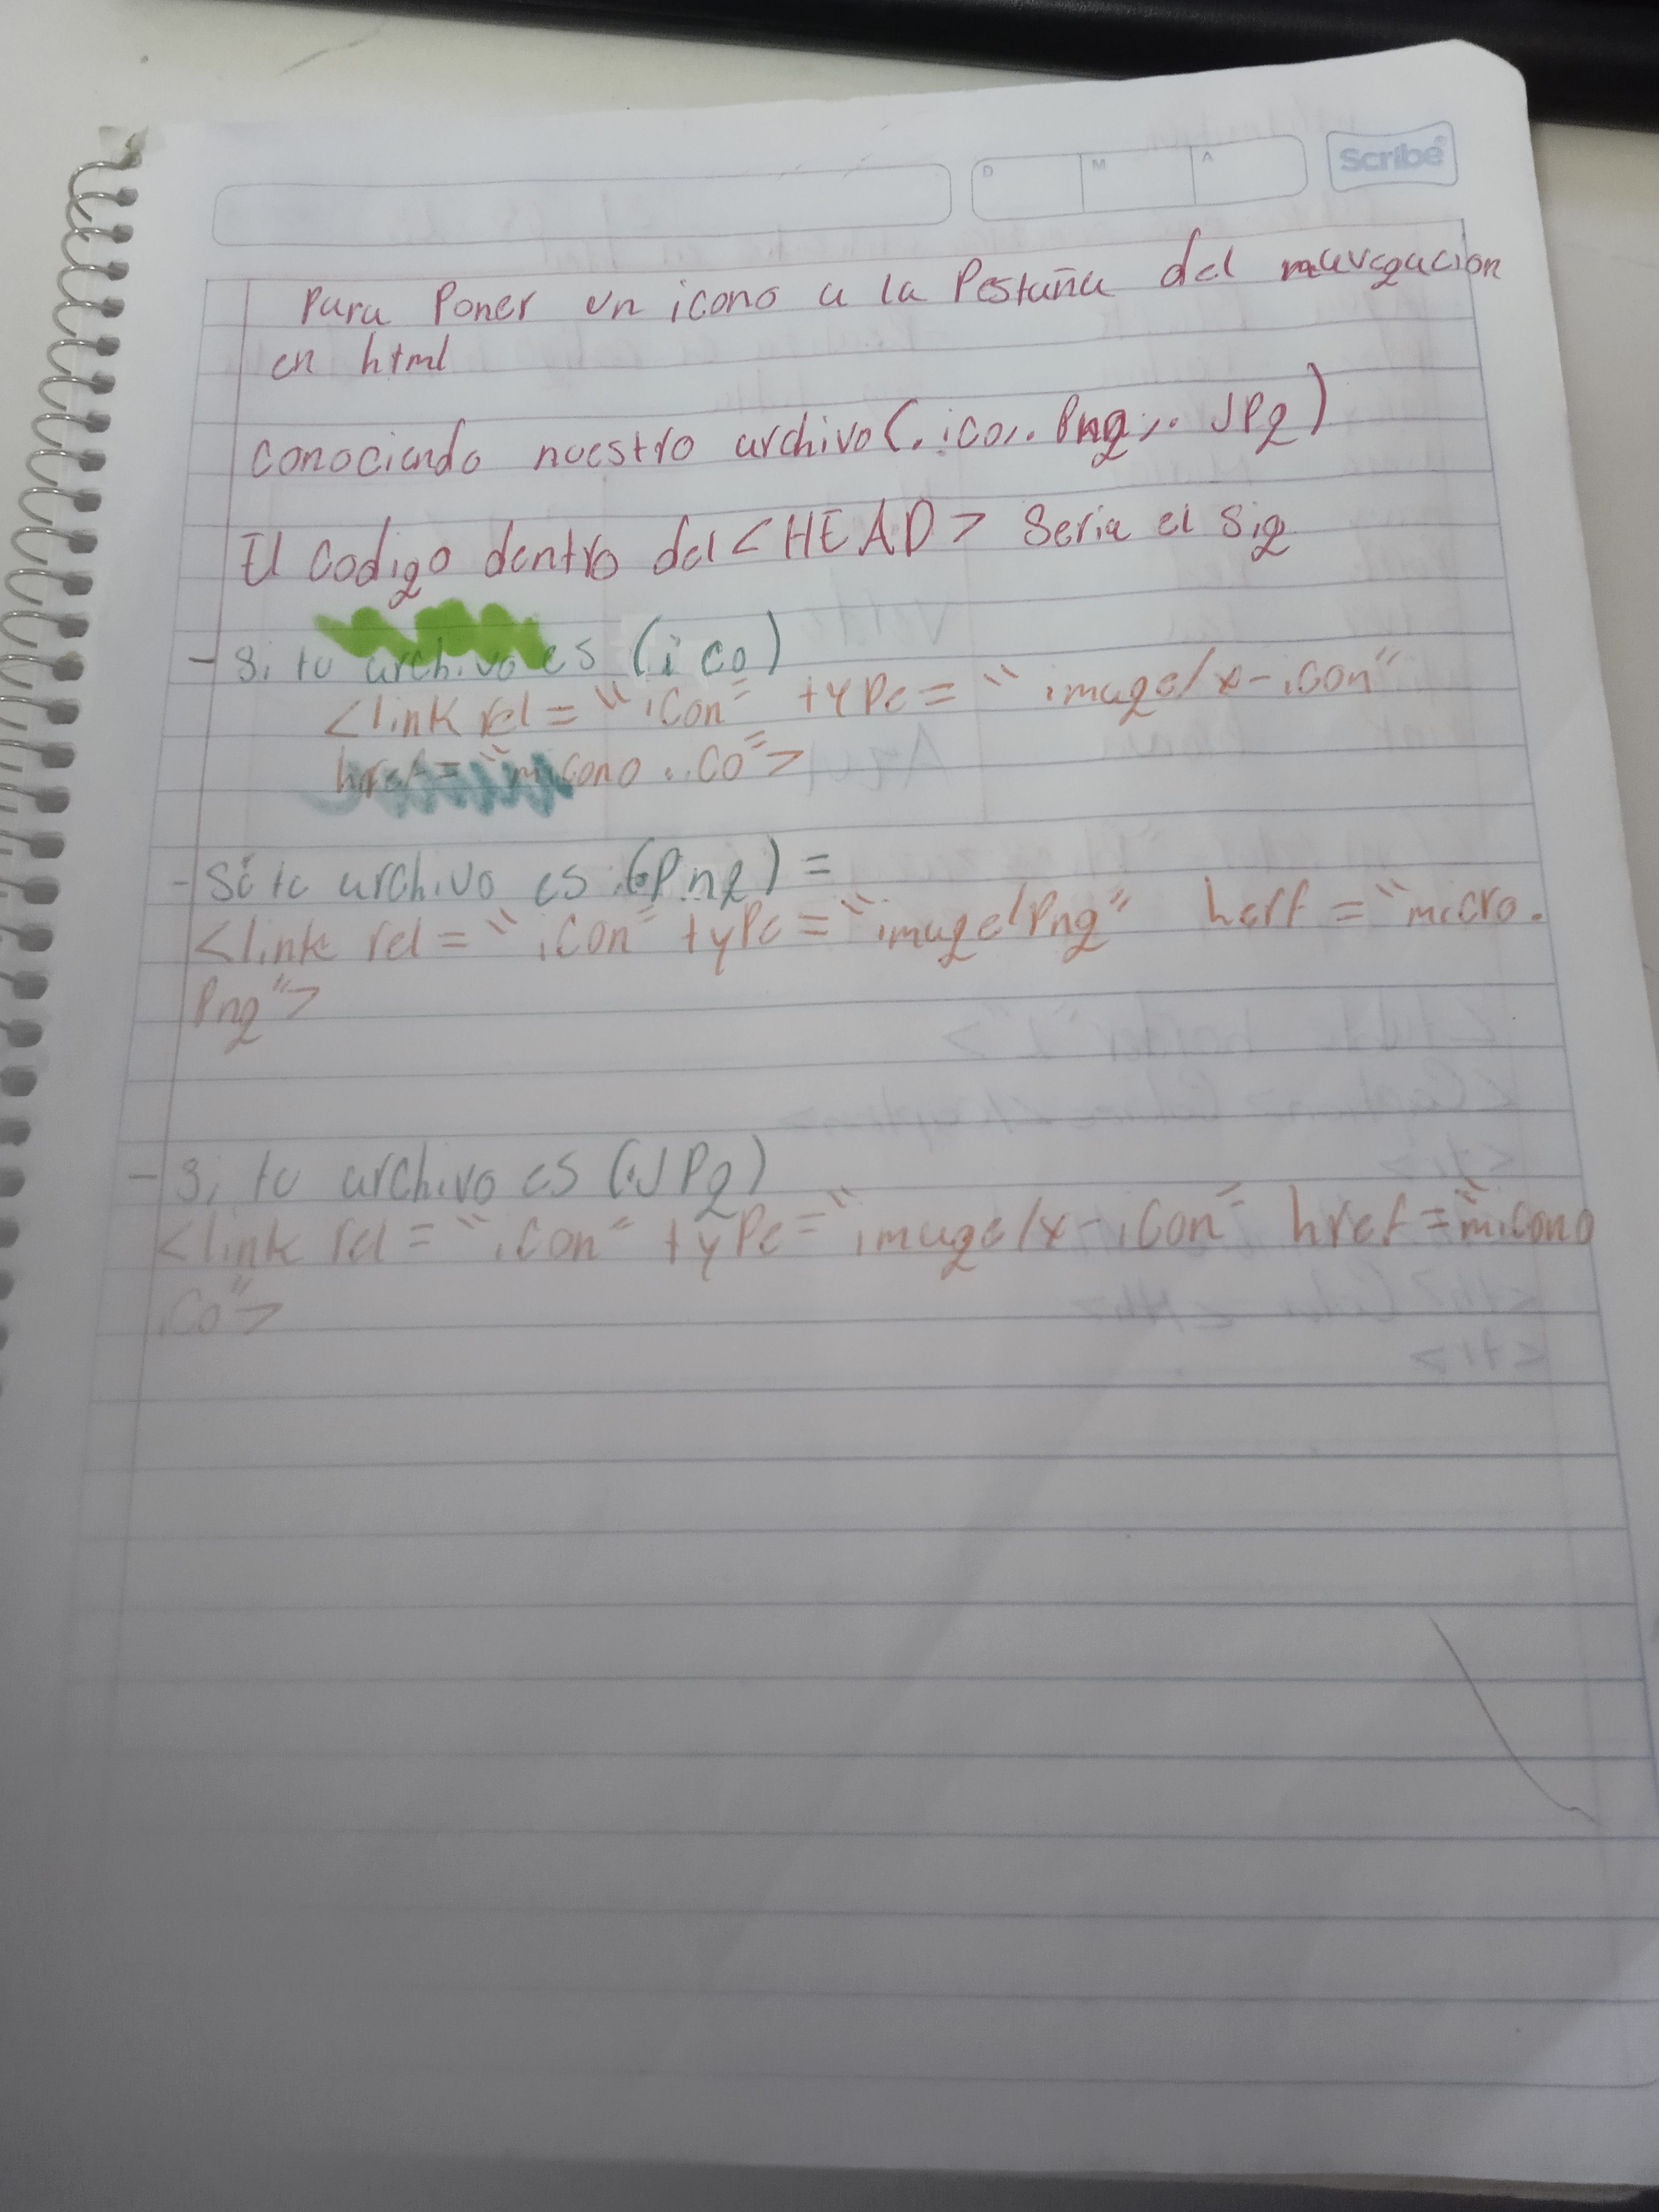 D M A Scribe
Para Poner un icono a la Pestaña del navegacion
en html
conociendo nuestro archivo (.ico,. Png,. JPg)
El codigo dentro del <HEAD> Seria el sig
- Si tu archivo es (ico)
<link rel = "icon" tyPe = "image/x-icon"
href = "micono.ico">
- Si tu archivo es (Png) =
<link rel = "icon" tyPe = "image/Png" herf = "micro.
Png">
- Si tu archivo es (.JPg)
<link rel = "icon" tyPe = "image/x-icon" href = "micono
.ico">